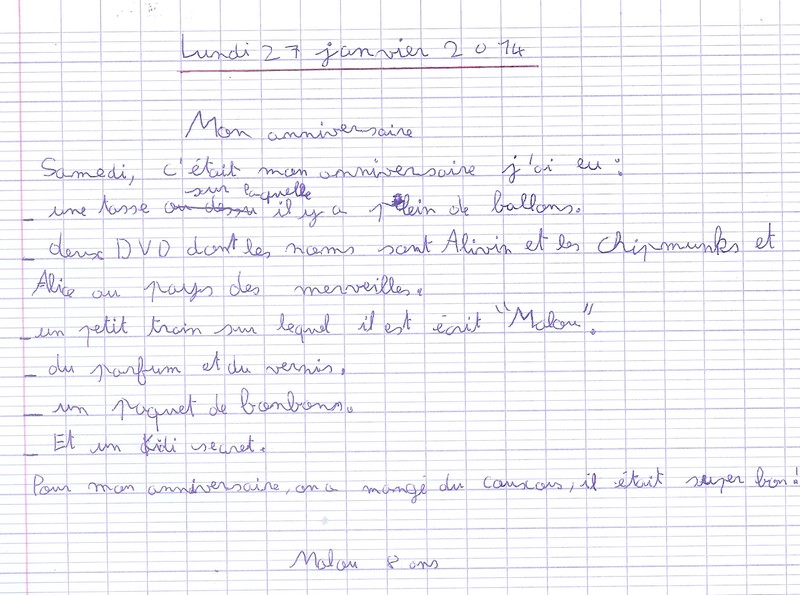 Lundi 27 janvier 2014
Mon anniversaire
Samedi, c'était mon anniversaire j'ai eu :
sur laquelle
_ une tasse ou dessu il y a plein de ballons.
_ deux DVD dont les noms sont Alivin et les chipmunks et
Alice au pays des merveilles.
_ un petit train sur lequel il est écrit "Malou".
_ du parfum et du vernis.
_ un paquet de bonbons.
_ Et un Kidi secret.
Pour mon anniversaire, on a mangé du couscous, il était super bon !
Malou 8 ans